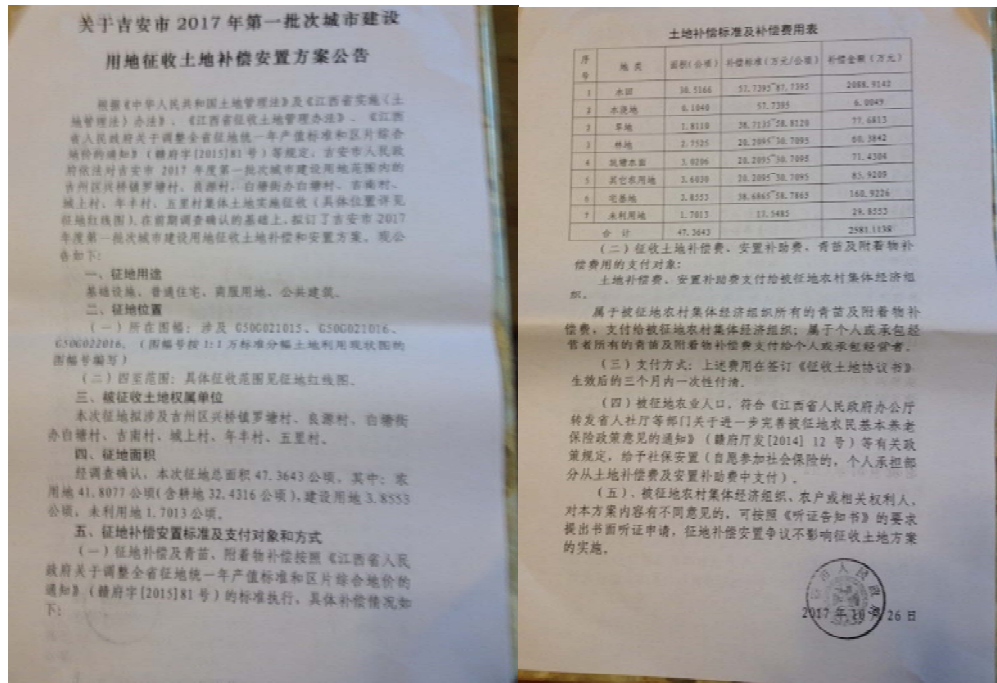 关于吉安市2017年第一批次城市建设
用地征收土地补偿安置方案公告
根据《中华人民共和国土地管理法》及《江西省实施〈土
地管理法〉办法》、《江西省征收土地管理办法》、《江西
省人民政府关于调整全省征地统一年产值标准和区片综合
地价的通知》(赣府字[2015]81号)等规定,吉安市人民政
府依法对吉安市2017年度第一批次城市建设用地范围内的
吉州区兴桥镇罗塘村、良源村,白塘街办白塘村、吉南村、
城上村、年丰村、五里村集体土地实施征收(具体位置详见
征地红线图)。在前期调查确认的基础上,拟订了吉安市2017
年度第一批次城市建设用地征收土地补偿和安置方案。现公
告如下:
一、征地用途
基础设施、普通住宅、商服用地、公共建筑。
二、征地位置
(一)所在图幅:涉及G50G021015、G50G021016、
G50G022016。(图幅号按1:1万标准分幅土地利用现状图的
图幅号编写)
(二)四至范围:具体征收范围见征地红线图。
三、被征收土地权属单位
本次征地拟涉及吉州区兴桥镇罗塘村、良源村,白塘街
办白塘村、吉南村、城上村、年丰村、五里村。
四、征地面积
经调查确认,本次征地总面积47.3643公顷,其中:农
用地41.8077公顷(含耕地32.4316公顷),建设用地3.8553
公顷,未利用地1.7013公顷。
五、征地补偿安置标准及支付对象和方式
(一)征地补偿及青苗、附着物补偿按照《江西省人民
政府关于调整全省征地统一年产值标准和区片综合地价的
通知》(赣府字[2015]81号)的标准执行,具体补偿情况如
下:
土地补偿标准及补偿费用表
序号 地类 面积(公顷) 补偿标准(万元/公顷) 补偿金额(万元)
1 水田 30.5166 57.7395~87.7395 2088.9142
2 水浇地 0.1040 57.7395 6.0049
2 旱地 1.8110 38.7135~58.8120 77.6813
3 林地 2.7525 20.2095~30.7095 60.3842
4 坑塘水面 3.0206 20.2095~30.7095 71.4304
5 其它农用地 3.6030 20.2095~30.7095 83.9209
6 宅基地 3.8553 38.6865~58.7865 160.9226
7 未利用地 1.7013 13.5485 29.8553
合计 47.3643 2581.1138
(二)征收土地补偿费、安置补助费、青苗及附着物补
偿费用的支付对象:
土地补偿费、安置补助费支付给被征地农村集体经济组
织。
属于被征地农村集体经济组织所有的青苗及附着物补
偿费,支付给被征地农村集体经济组织;属于个人或承包经
营者所有的青苗及附着物补偿费支付给个人或承包经营者。
(三)支付方式:上述费用在签订《征收土地协议书》
生效后的三个月内一次性付清。
(四)被征地农业人口,符合《江西省人民政府办公厅
转发省人社厅等部门关于进一步完善被征地农民基本养老
保险政策意见的通知》(赣府厅发[2014] 12号)等有关政
策规定,给予社保安置(自愿参加社会保险的,个人承担部
分从土地补偿费及安置补助费中支付)。
(五)、被征地农村集体经济组织、农户或相关权利人,
对本方案内容有不同意见的,可按照《听证告知书》的要求
提出书面听证申请,征地补偿安置争议不影响征收土地方案
的实施。
市人民政府
2017年10月26日